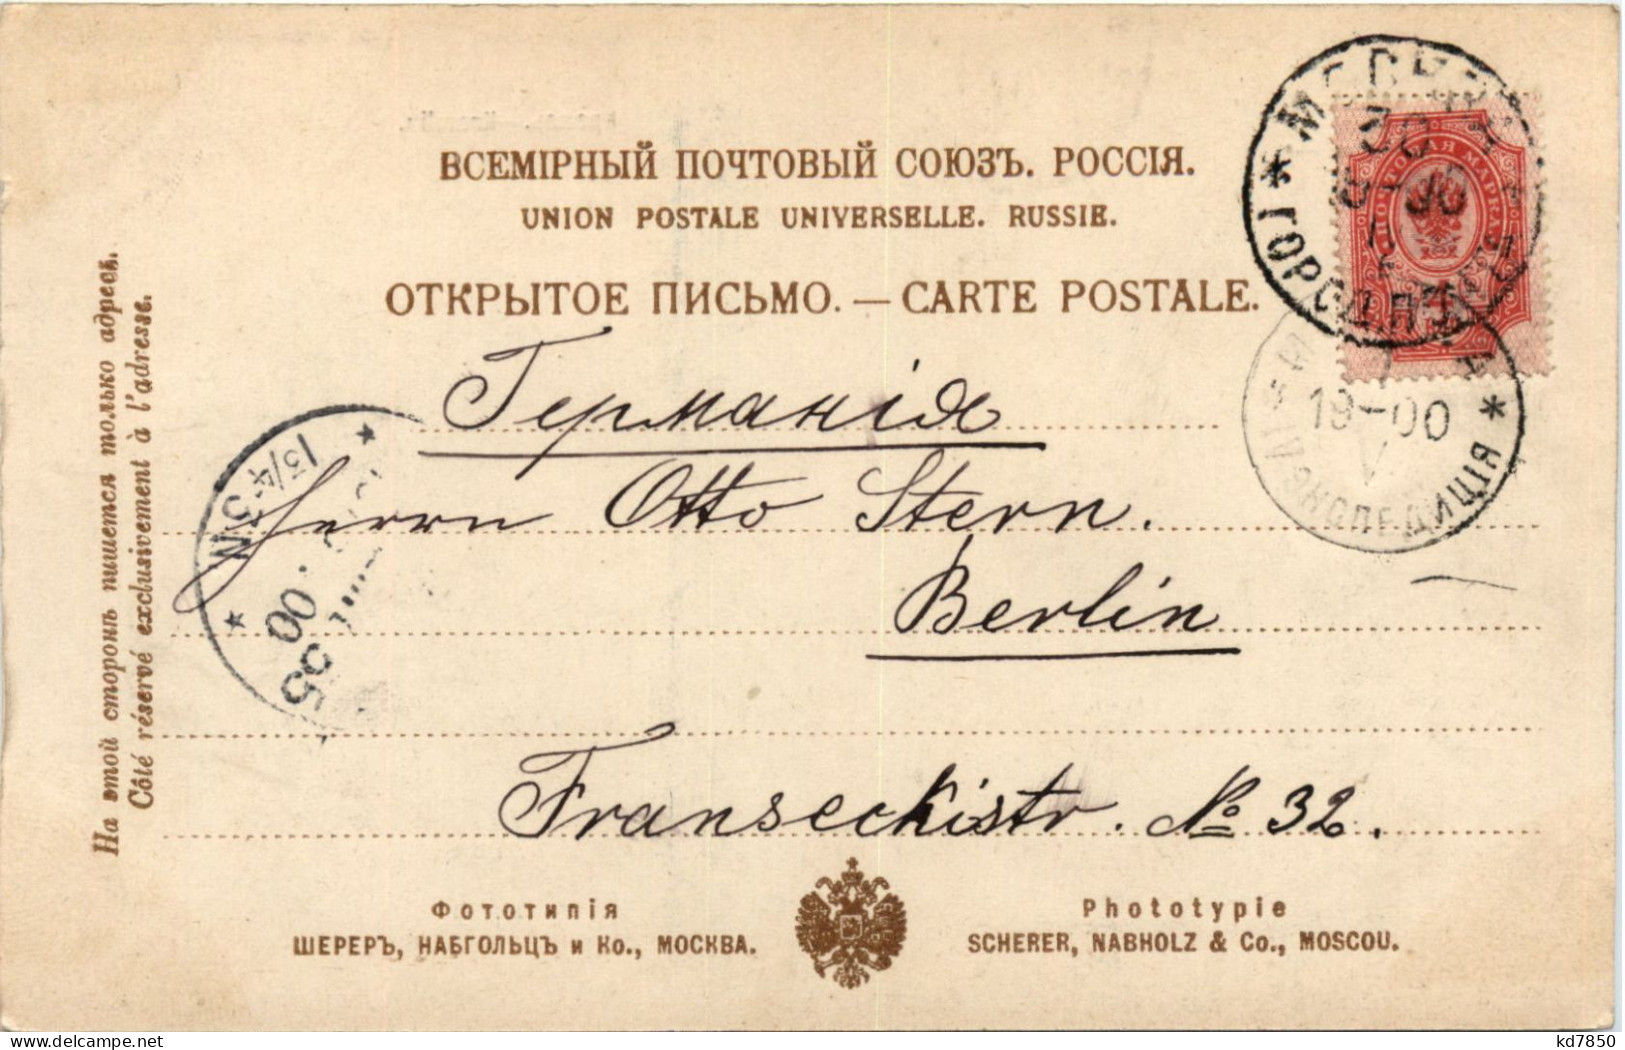 ВСЕМІРНЫЙ ПОЧТОВЫЙ СОЮЗЪ. РОССІЯ.
UNION POSTALE UNIVERSELLE. RUSSIE.
ОТКРЫТОЕ ПИСЬМО. — CARTE POSTALE.
На этой сторонѣ пишется только адресъ.
Côté réservé exclusivement à l'adresse.
ПОЧТОВАЯ МАРКА
МОСКВА
19–00
V
ЭКСПЕДИЦІЯ
Германія
Herrn Otto Stern.
Berlin
Franseckistr. № 32.
13/4-5N
00
55
Фототипія
ШЕРЕРЪ, НАБГОЛЬЦЪ и Ко., МОСКВА.
Phototypie
SCHERER, NABHOLZ & Co., MOSCOU.
kd7850